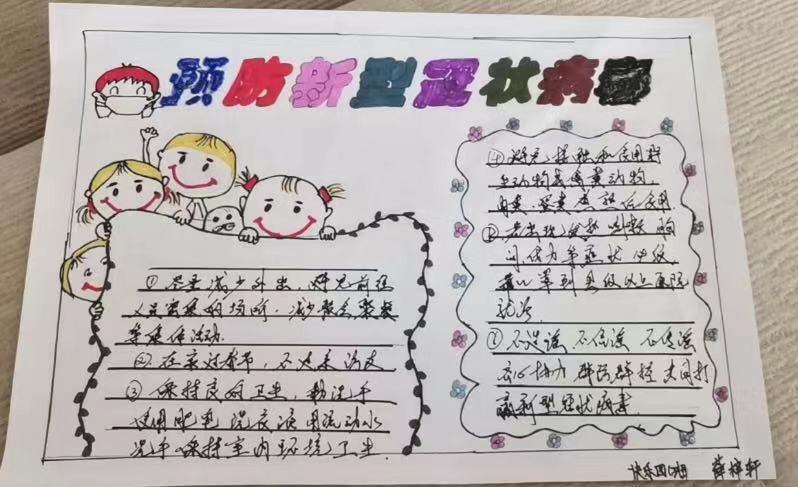 预防新型冠状病毒
①尽量减少外出，避免前往
人员密集的场所，减少聚会，聚餐
等集体活动.
②在家过春节，不走亲访友
③保持良好卫生，勤洗手
使用肥皂洗衣液用流动水
洗手保持室内环境卫生
④避免接触和食用野
生动物或禽类动物,
肉类蛋类煮熟后食用
若出现发热咳嗽胸
闷 乏力等症状 
到县级以上医院
就诊
不造谣 不信谣 不传谣
齐心协力 群防群控 共同打
赢新型冠状病毒
快乐四(2)班